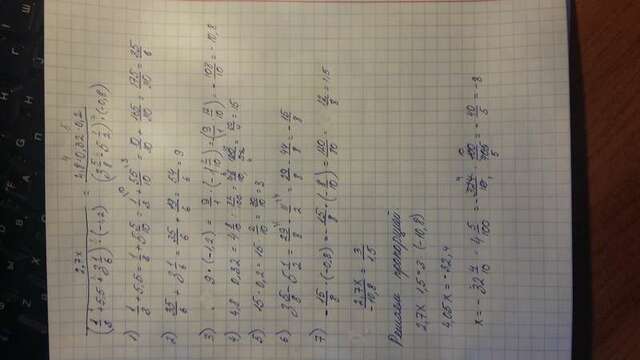 4 5
2,7x / ((1/3 + 5,5 + 3 1/6) · (-1,2)) = 4,8 : 0,32 · 0,2 / ((3 5/8 - 5 1/2) · (-0,8))
1) 1/3 + 5,5 = 1/3 + 5 5/10 = 1/3 + 55/10 = 10/30 + 165/30 = 175/30 = 35/6
2) 35/6 + 3 1/6 = 35/6 + 19/6 = 54/6 = 9
3) 9 · (-1,2) = 9/1 · (-1 2/10) = 9/1 · 12/10 = - 108/10 = - 10,8
4) 4,8 : 0,32 = 4 8/10 : 32/100 = 48/10 · 100/32 = /4 = 15
5) 15 · 0,2 = 15 · 2/10 = 30/10 = 3
6) 3 5/8 - 5 1/2 = 29/8 - 11/2 = 29/8 - 44/8 = - 15/8
7) - 15/8 · (-0,8) = - 15/8 · (- 8/10) = 120/80 = 12/8 = 1,5
2,7x / -10,8 = 3 / 1,5
Решаем пропорцией
2,7x · 1,5 = 3 · (-10,8)
4,05x = -32,4
x = - 32 4/10 : 4 5/100 = - 324/10 · 100/405 = - 40/5 = -8